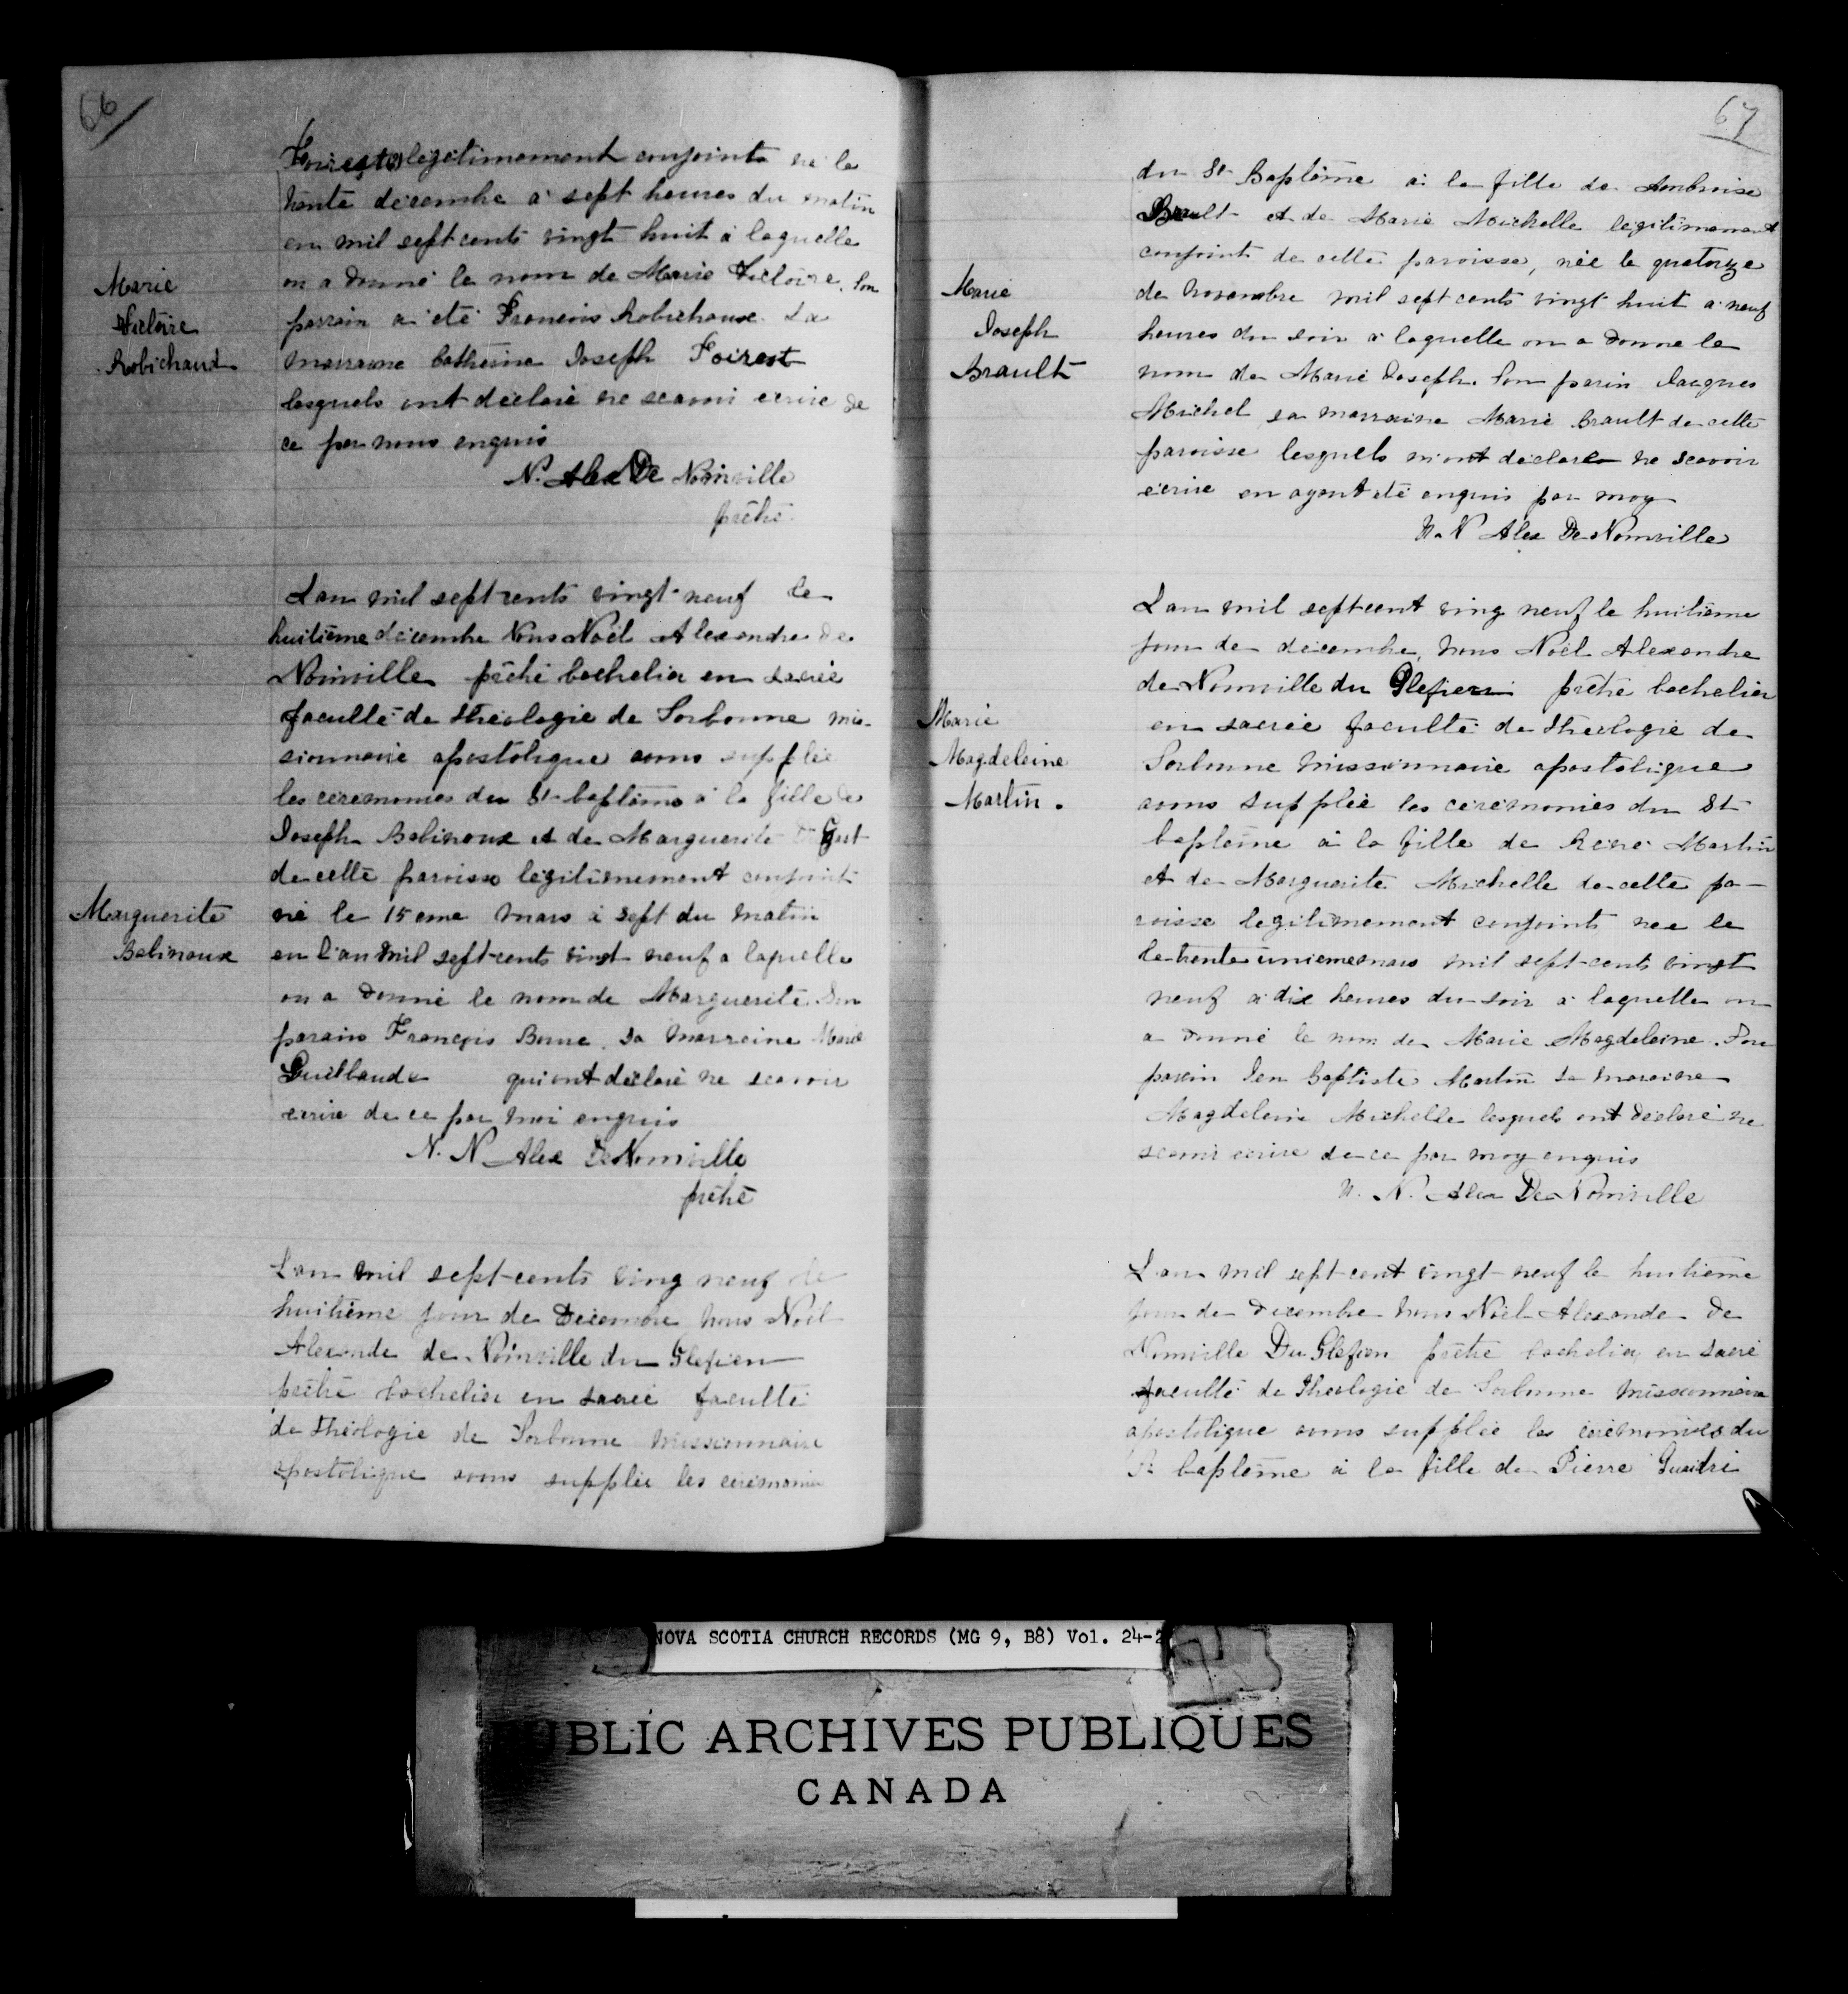 66
Foirest legitimement conjoints né le
trente decembre à sept heures du matin
en mil sept cents vingt huit à laquelle
on a donné le nom de Marie Victoire. Son
parrain a été François Robichaux. La
marraine Catherine Joseph Foirest
lesquels ont déclaré ne scavoir ecrire de
ce par nous enquis
N. Alex De Noinville
prêtre
Marie
Victoire
Robichaud
Lan mil sept cents vingt-neuf le
huitième décembre Nous Noël Alexandre de
Noinville prêtre bachelier en sacrée
faculté de théologie de Sorbonne mis-
sionnaire apostolique avons supplée
les ceremonies du St-baptême à la fille de
Joseph Babinoux et de Marguerite
de cette paroisse légitimement conjoints
né le 15 eme mars à sept du matin
en l'an mil sept-cents vingt neuf a laquelle
on a donné le nom de Marguerite Son
parain François Bourc sa marraine Marie
Guillaude qui ont déclaré ne scavoir
ecrire de ce par moi enquis
N. N Alex De Noinville
prêtre
Marguerite
Babinoux
Lan mil sept-cents ving neuf le
huitième jour de Décembre Nous Noël
Alexandre de Noinville du Glefien
prêtre bachelier en sacrée faculté
de théologie de Sorbonne missionnaire
apostolique avons supplée les ceremonies
67
du St Baptême à la fille de Ambroise
Brault et de Marie Michelle legitimement
conjoints de cette paroisse, née le quatorze
de Novembre mil sept cents vingt huit a neuf
heures du soir à laquelle on a donné le
nom de Marie Joseph. Son parin Jacques
Michel sa marraine Marie Brault de cette
paroisse lesquels m'ont déclaré ne scavoir
écrire en ayant eté enquis par moy
N. N Alex De Noinville
Marie
Joseph
Brault
Lan mil sept cent ving neuf le huitième
jour de décembre, Nous Noël Alexandre
de Noinville du Glefien prêtre bachelier
en sacrée faculté de théologie de
Sorbonne Missionnaire apostolique
avons supplée les ceremonies du St
baptême à la fille de Réné Martin
et de Marguerite Michelle de cette pa-
roisse legitimement conjoints née le
le trente unieme mars mil sept-cents vingt
neuf a dix heures du soir à laquelle on
a donné le nom de Marie Magdeleine. Son
parain Jean Baptiste Martin sa maraine
Magdeleine Michelle lesquels ont déclaré ne
scavoir ecrire de ce par moy enquis
N. N. Alex De Noinville
Marie
Magdeleine
Martin.
Lan mil sept cent vingt-neuf le huitième
jour de décembre Nous Noël Alexandre De
Noinville Du Glefien prêtre bachelier en sacré
faculté de Théologie de Sorbonne Missionnaire
apostolique avons supplée les cérémonies du
St baptême à la fille de Pierre Guaidri
NOVA SCOTIA CHURCH RECORDS (MG 9, B8) Vol. 24-2
PUBLIC ARCHIVES PUBLIQUES
CANADA